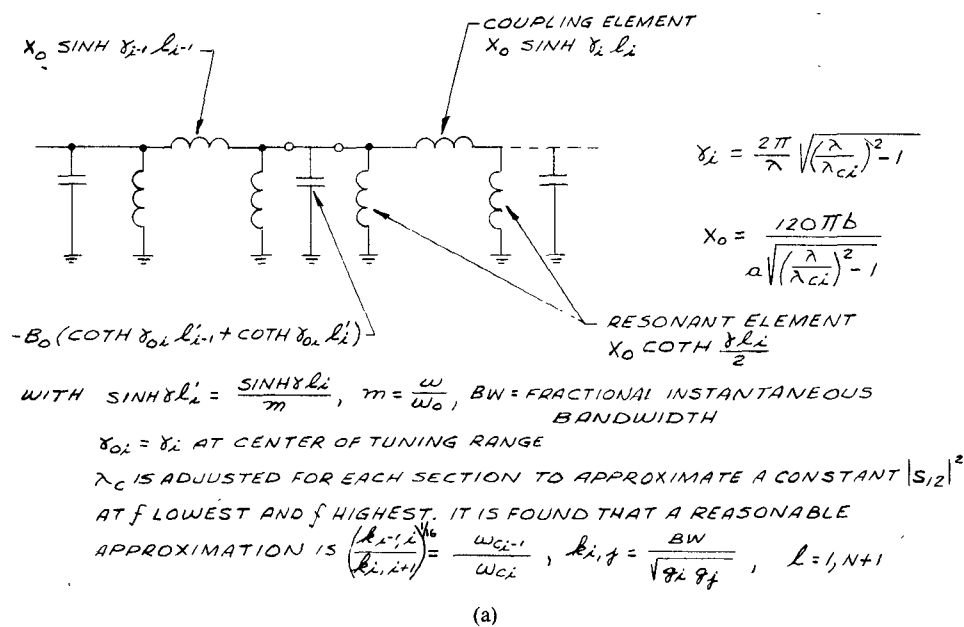 COUPLING ELEMENT
X₀ SINH γᵢ₋₁ ℓᵢ₋₁
X₀ SINH γᵢ ℓᵢ
γᵢ = 2π/λ √((λ/λcᵢ)² - 1)
X₀ = 120πb / a√((λ/λcᵢ)² - 1)
-B₀(COTH γ₀ᵢ ℓ'ᵢ₋₁ + COTH γ₀ᵢ ℓ'ᵢ)
RESONANT ELEMENT
X₀ COTH γℓᵢ/2
WITH SINHγℓ'ᵢ = SINHγℓᵢ/m, m = ω/ω₀, BW = FRACTIONAL INSTANTANEOUS
BANDWIDTH
γ₀ᵢ = γᵢ AT CENTER OF TUNING RANGE
λc IS ADJUSTED FOR EACH SECTION TO APPROXIMATE A CONSTANT |S₁₂|²
AT f LOWEST AND f HIGHEST. IT IS FOUND THAT A REASONABLE
APPROXIMATION IS (kᵢ₋₁,ᵢ/kᵢ,ᵢ₊₁)^1/16 = ωcᵢ₋₁/ωcᵢ, kᵢ,ⱼ = BW/√(gᵢ gⱼ), l = 1, N+1
(a)